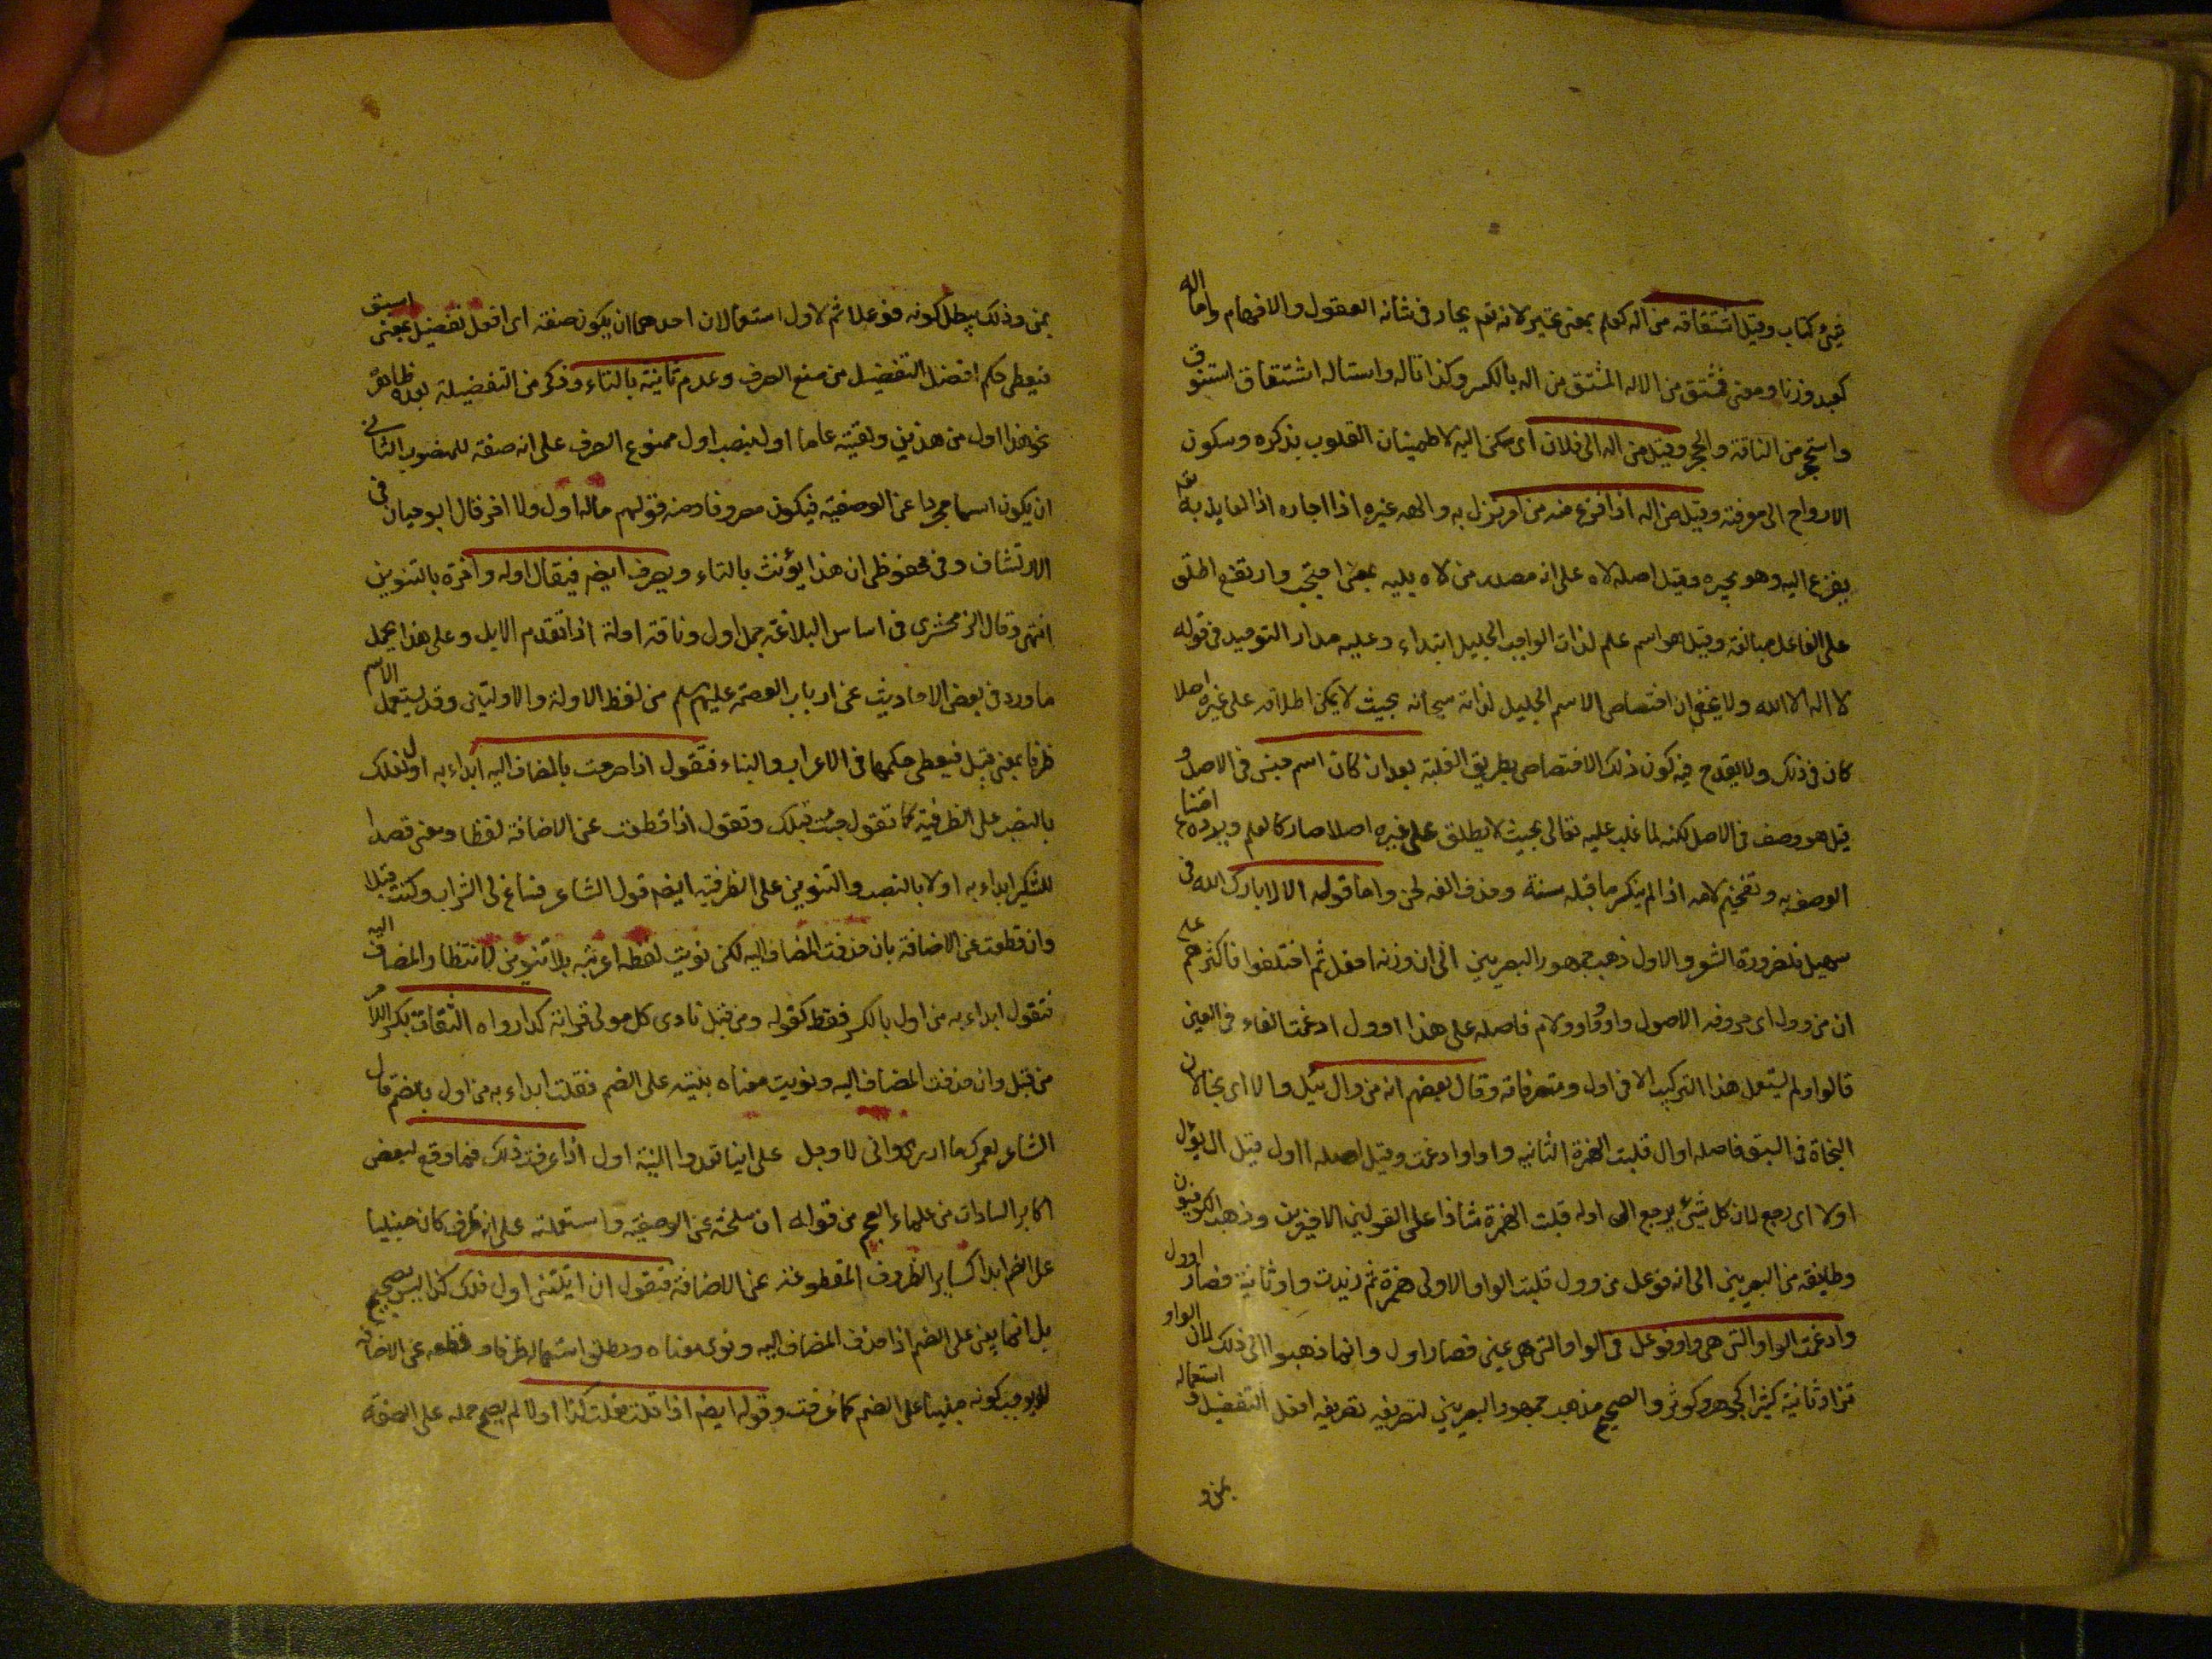 فيئ كتاب وقيل اشتقاقه من اله كعلم بمعنى تحير لانه تع يحار فى شانه العقول والافهام واما اله
كعبد وزنا ومعنى فمشتق من الاله المشتق من اله بالكسر وكذا تاله واستاله اشتقاق استنوق
واستحجر من الناقة والحجر وقيل من اله الى فلان اى سكن اليه لاطمينان القلوب بذكره وسكون
الارواح الى معرفته وقيل من اله اذا فزع منه من امر نزل به والهه غيره اذا اجاره اذ العايذ به تع
يفزع اليه وهو يجيره وقيل اصله لاه على انه مصدر من لاه يليه بمعنى احتجب وارتفع اطلق
على الفاعل مبالغة وقيل هو اسم علم لذات الواجب الجليل ابتداء وعليه مدار التوحيد فى قوله
لا اله الا الله ولا يخفى ان اختصاص الاسم الجليل لذاته سبحانه بحيث لا يمكن اطلاقه على غيره اصلا
كان فى ذلك ولا يقدح فيه كون ذلك الاختصاص بطريق الغلبة بعد ان كان اسم جنس فى الاصل و
قيل هو وصف فى الاصل لكنه لما غلب عليه تعالى بحيث لا يطلق على غيره اصلا صار كالعلم ويرده امتناع
الوصف به وتفخيم لامه اذا لم ينكسر ما قبله سنة وحذف الفه لحن واما قوله الا لا بارك الله فى
سهيل فلضرورة الشعر والاول ذهب جمهور البصريين الى ان وزنه افعل ثم اختلفوا فاكثرهم على
ان من وول اى حروفه الاصول واو وواو ولام فاصله على هذا اوول ادغمت الفاء فى العين
قالوا ولم يستعمل هذا التركيب الا فى اول ومتصرفاته وقال بعضهم انه من وال يئل والا اى نجا لان
النجاة فى السبق فاصله اوال قلبت الهمزة الثانيه واوا وادغمت وقيل اصله ااول قيل ال يؤل
اولا اى رجع لان كل شيئ يرجع الى اوله قلبت الهمزة شاذا على القولين الاخيرين وذهب الكوفيون
وطايفة من البصريين الى انه فوعل من وول قلبت الواو الاولى همزة ثم زيدت واو ثانية فصار اوول
وادغمت الواو التى هى واو فوعل فى الواو التى هى عينى فصار اول وانما ذهبوا الى ذلك لان الواو
تزاد ثانية كثيرا كجوهر وكوثر والصحيح مذهب جمهور البصريين لتصريفه تصريفه افعل التفضيل و استعماله
بمن و
بمن وذلك يبطل كونه فوعلا ثم لاول استعمالان احدهما ان يكون صفة اى افعل تفضيل بمعنى اسبق
فيعطى حكم افضل التفضيل من منع الصرف وعدم تانيثه بالتاء وذكر من التفضيلة بعده ظاهرة
نحو هذا اول من هذين ولقيته عاما اول بنصب اول ممنوع الصرف على انه صفة للمنصوب الثانى
ان يكون اسما مجردا عن الوصفية فيكون مصروفا ومنه قولهم ماله اول ولا اخر قال ابو حيان فى
الارتشاف وفى محفوظى ان هذا يؤنث بالتاء ويصرف ايضم فيقال اوله واخرة بالتنوين
انتهى وقال الزمخشرى فى اساس البلاغة جمل اول وناقة اولة اذا تقدم الابل وعلى هذا يحمل
ما ورد فى بعض الاحاديث عن ارباب العصمة عليهم سلم من لفظ الاولة والاولتيان وقد يستعمل الاسم
ظرفا بمعنى قبل فيعطى حكمهما فى الاعراب والبناء فتقول اذا صرحت بالمضاف اليه ابداء به اول فعلك
بالنصب على الظرفية كما تقول جئت قبلك وتقول اذا قطعت عن الاضافة لفظا ومعنى قصدا
للتنكير ابداء به اولا بالنصب والتنوين على الظرفية ايضم قول الشاعر فساغ لى الشراب وكنت قبلا
وان قطعت عن الاضافة بان حذفت المضاف اليه لكن نويت لفظه اعربته بلا تنوين لانتظار المضاف اليه
فتقول ابداء به من اول بالكسر فقط كقوله ومن قبل نادى كل مولى قرابة كذا رواه الثقات بكسر اللام
من قبل وان حذفت المضاف اليه ونويت معناه بنيته على الضم فقلت ابداء به من اول بالضم قال
الشاعر لعمرك ما ادرى وانى لاوجل على اينا تعدوا المنية اول اذا عرفت ذلك فما وقع لبعض
اكابر السادات من علماء العجم من قوله ان سلخته عن الوصفية واستعملته على انه ظرف كان مبنيا
على الضم ابدا كساير الظروف المقطوعة عن الاضافة فتقول ان اتيتنى اول فلك كذا ليس بصحيح
بل انما يبنى على الضم اذا حذف المضاف اليه ونوى معناه ومطلق استعماله ظرفا وقطعه عن الاضافة
لا يوجب كونه مبنيا على الضم كما عرفت وقوله ايضم اذا قلت فعلت كذا اولا لم يصح حمله على الصفة